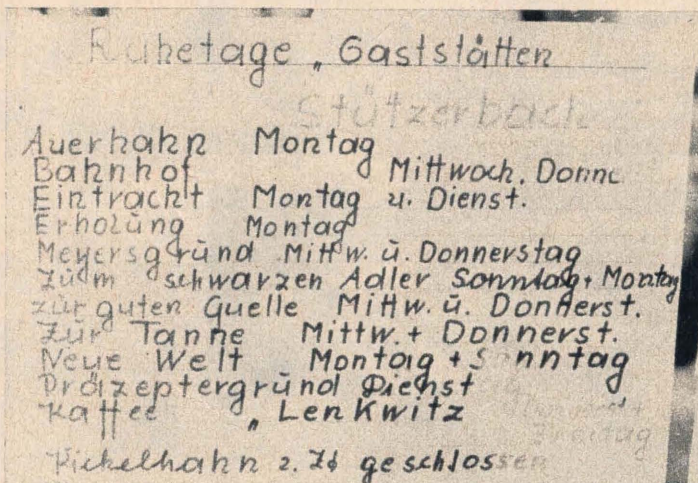 Ruhetage „ Gaststätten
Stützerbach
Auerhahn Montag
Bahnhof Mittwoch, Donne
Eintracht Montag u. Dienst.
Erholung Montag
Meyersgrund Mittw. u. Donnerstag
Zum schwarzen Adler Sonntag + Montag
zur guten Quelle Mittw. u. Donnerst.
Zur Tanne Mittw. + Donnerst.
Neue Welt Montag + Sonntag
Präzeptergrund Dienst
Kaffee „ Lenkwitz
Freitag
Kickelhahn z. Zt geschlossen